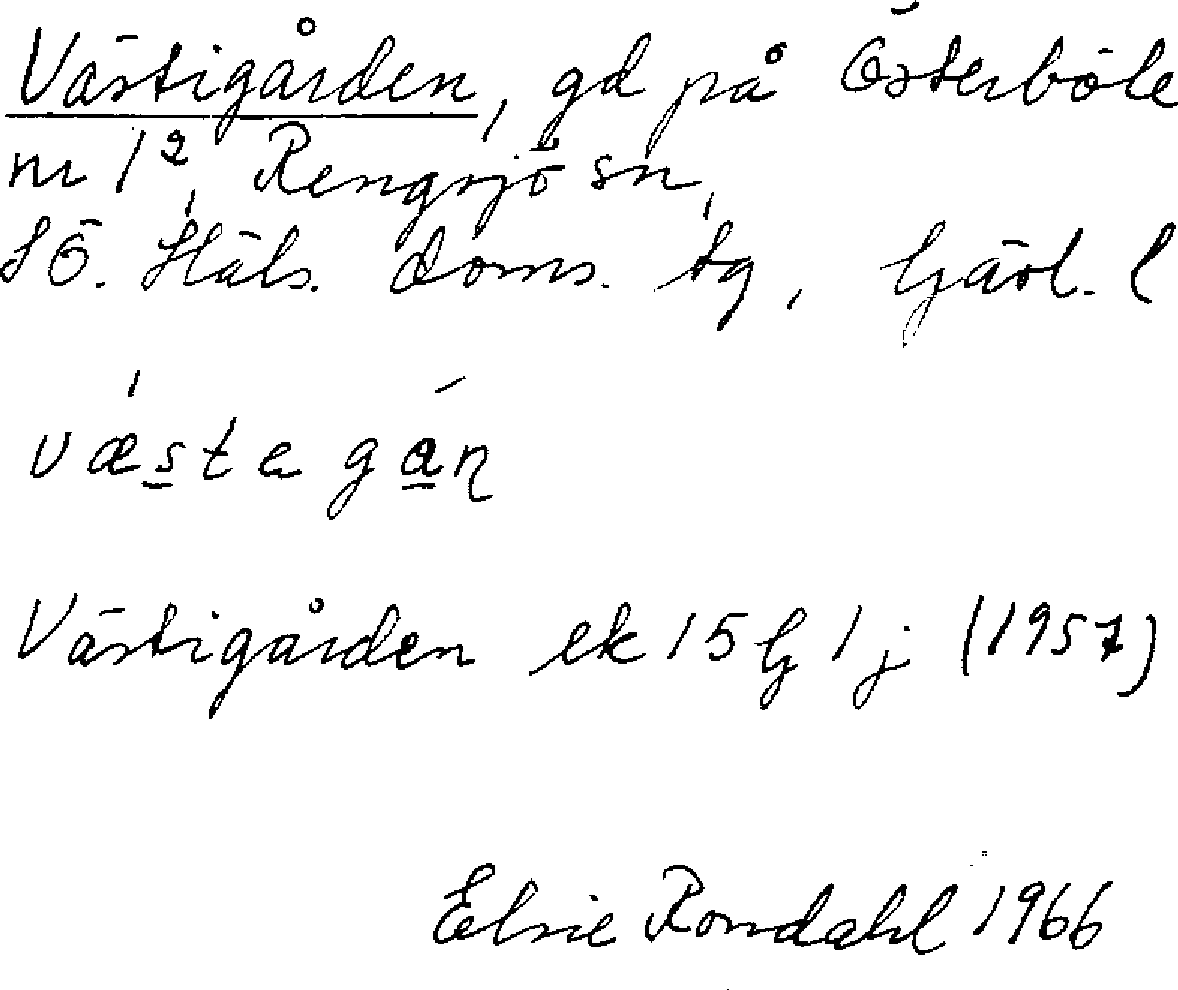 Västigården, gd på Österböle
nr 1², Rengsjö sn,
SÖ. Häls. doms. tg, Gävl. l
væstegan
Västigården ek 15 G 1 j (1957)
Elsie Rondahl 1966